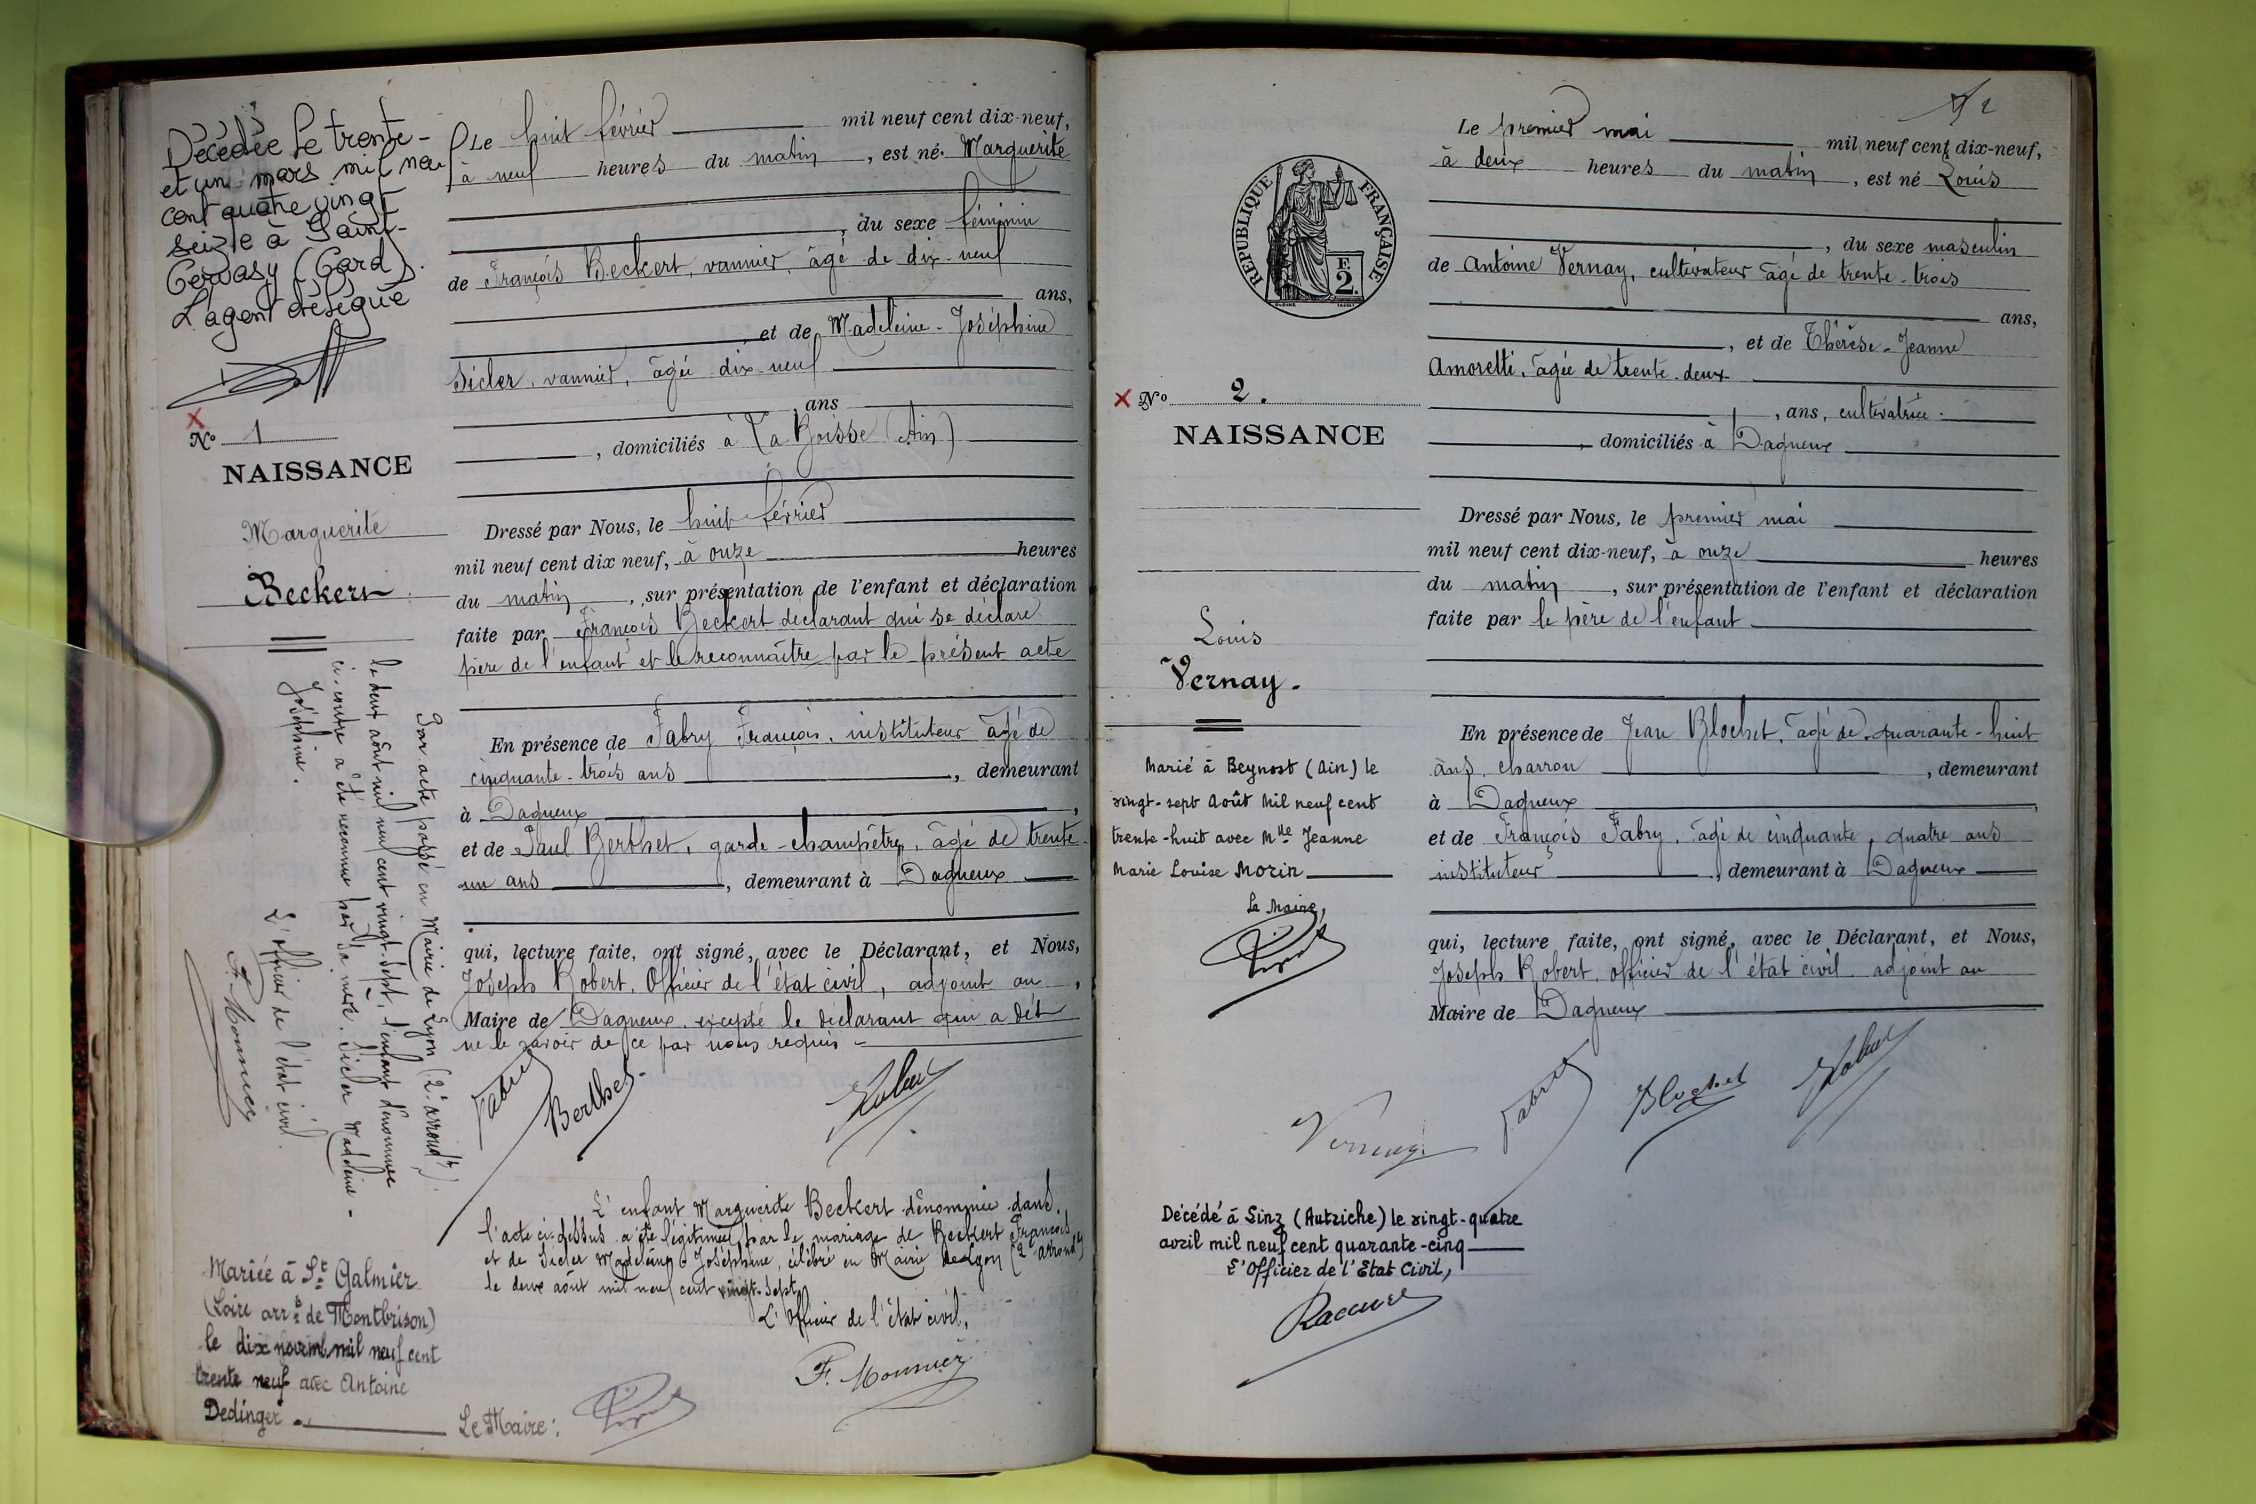 Décédée le trente-
et un mars mil neuf
cent quatre vingt
seize à Saint-
Gervasy (Gard).
L'agent délégué
No 1
NAISSANCE
Marguerite
Beckert
Par acte passé en Mairie de Lyon (2e arrondt)
le deux août mil neuf cent vingt-sept, l'enfant dénommée
ci-contre a été reconnue par sa mère. Sicler Madeleine-
Joséphine.
L'officier de l'état civil.
F. Mounier
Mariée à St Galmier
(Loire arrt de Montbrison)
le dix novemb. mil neuf cent
trente neuf avec Antoine
Dedinger.
Le Maire:
Le huit février mil neuf cent dix-neuf,
à neuf heures du matin, est né. Marguerite
, du sexe féminin
de François Beckert, vannier, âgé de dix-neuf
ans,
, et de Madeleine-Joséphine
Sicler, vannier, âgée dix-neuf
ans
, domiciliés à La Boisse (Ain)
Dressé par Nous, le huit février
mil neuf cent dix neuf, à onze heures
du matin, sur présentation de l'enfant et déclaration
faite par François Beckert déclarant qui se déclare
père de l'enfant et le reconnaître par le présent acte
En présence de Fabry François, instituteur âgé de
cinquante-trois ans, demeurant
à Dagneux,
et de Paul Berthet, garde-champêtre, âgé de trente-
un ans, demeurant à Dagneux
qui, lecture faite, ont signé, avec le Déclarant, et Nous,
Joseph Robert, Officier de l'état civil, adjoint au,
Maire de Dagneux, excepté le déclarant qui a dit
ne le savoir de ce par nous requis-
Fabry
Berthet
Robert
L'enfant Marguerite Beckert dénommée dans
l'acte ci-dessus a été légitimée par le mariage de Beckert François
et de Sicler Madeleine Joséphine, célébré en Mairie de Lyon (2e arrondt)
le deux août mil neuf cent vingt-sept
L'Officier de l'état civil,
F. Mounier
2
REPUBLIQUE FRANÇAISE
F.
2.
No 2.
NAISSANCE
Louis
Vernay.
Marié à Beynost (Ain) le
vingt-sept Août Mil neuf cent
trente-huit avec Mlle Jeanne
Marie Louise Morin
Le Maire,
Le premier mai mil neuf cent dix-neuf,
à deux heures du matin, est né Louis
, du sexe masculin
de Antoine Vernay, cultivateur âgé de trente-trois
ans,
, et de Thérèse-Jeanne
Amoretti, âgée de trente-deux
, ans, cultivatrice-
, domiciliés à Dagneux
Dressé par Nous, le premier mai
mil neuf cent dix-neuf, à onze heures
du matin, sur présentation de l'enfant et déclaration
faite par le père de l'enfant
En présence de Jean Blochet, âgé de quarante-huit
ans, charron, demeurant
à Dagneux,
et de François Fabry, âgé de cinquante-quatre ans
instituteur, demeurant à Dagneux
qui, lecture faite, ont signé, avec le Déclarant, et Nous,
Joseph Robert, officier de l'état civil adjoint au
Maire de Dagneux
Vernay
Fabry
Blochet
Robert
Décédé à Linz (Autriche) le vingt-quatre
avril mil neuf cent quarante-cinq
L'Officier de l'Etat Civil,